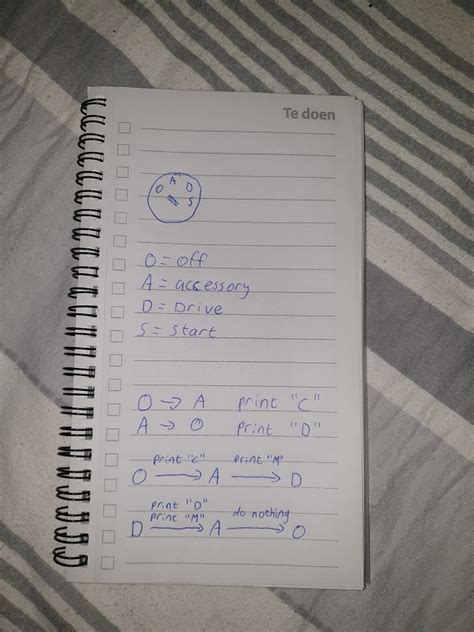 Te doen
O A D S
O = off
A = accessory
D = Drive
S = Start
O → A print "C"
A → O print "D"
print "C" print "M"
O → A → D
print "D"
print "M" do nothing
D → A → O